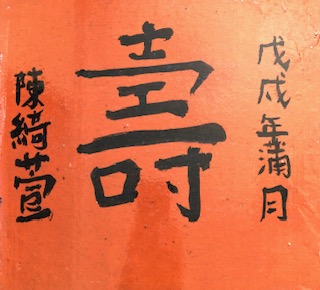 戊戌年蒲月
壽
陳綺萱